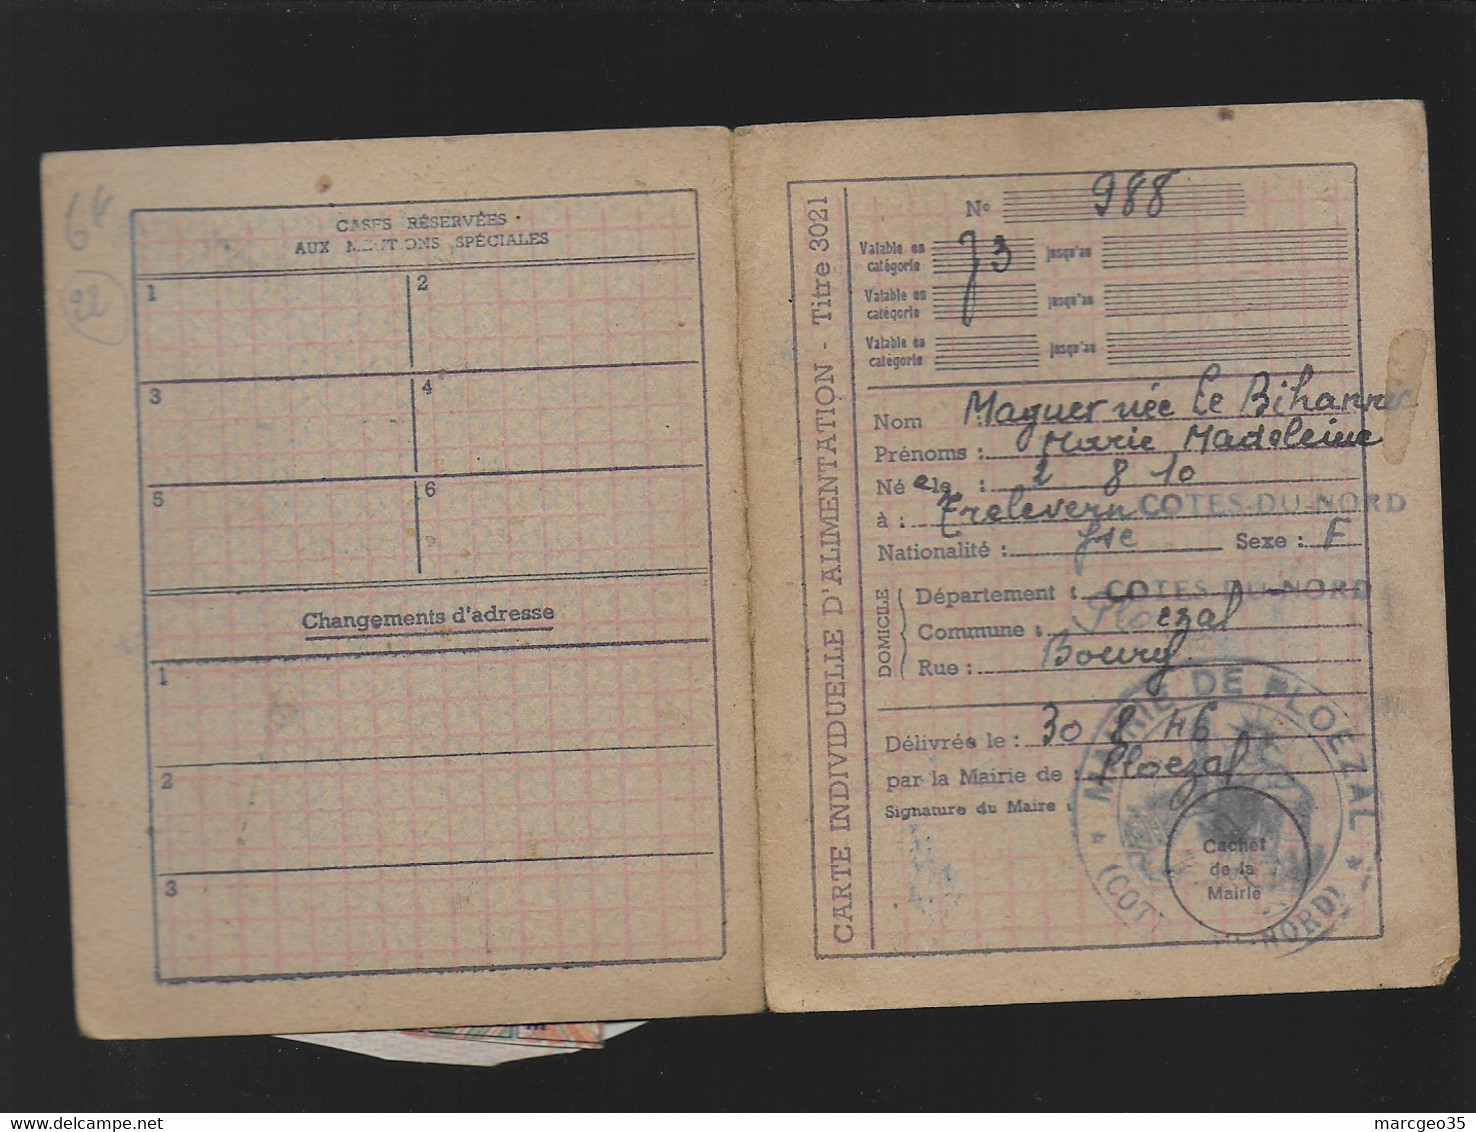 64
22
CASES RÉSERVÉES
AUX MENTIONS SPÉCIALES
1
2
3
4
5
6
Changements d'adresse
1
2
3
CARTE INDIVIDUELLE D'ALIMENTATION - Titre 3021
N° 988
Valable en catégorie J3 jusqu'au
Valable en catégorie jusqu'au
Valable en catégorie jusqu'au
Nom Maguer née Le Bihannic
Prénoms : Marie Madeleine
Né e le : 2 8 10
à : Trelevern COTES-DU-NORD
Nationalité : fse Sexe : F
DOMICILE
Département : COTES-DU-NORD
Commune : Ploezal
Rue : Bourg
Délivrée le : 30 8 46
par la Mairie de : Ploezal
Signature du Maire :
MAIRIE DE PLOEZAL
* (COT NORD) *
Cachet
de la
Mairie
marcgeo35